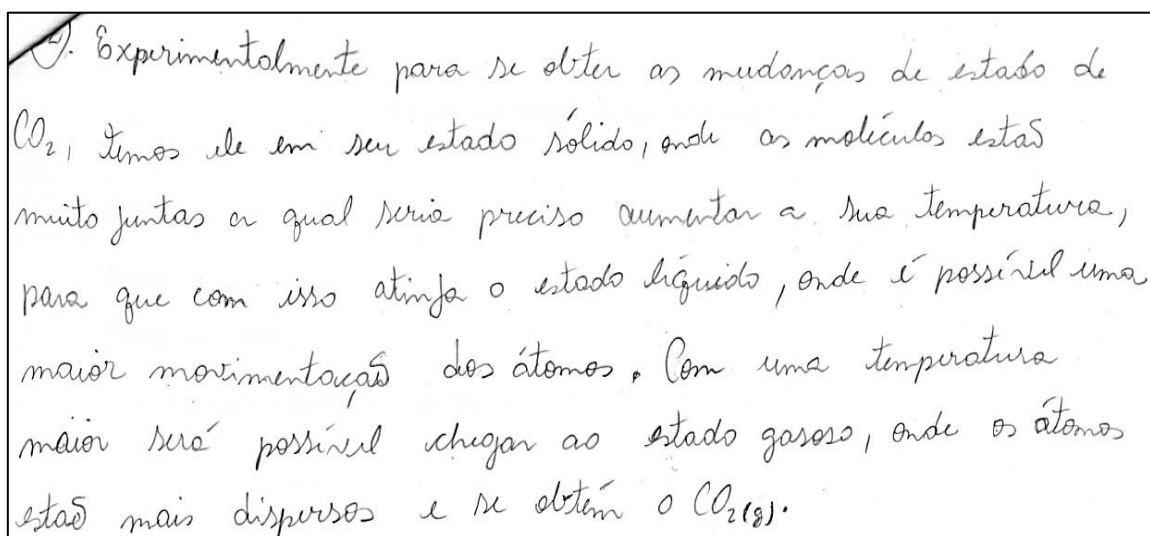 2). Experimentalmente para se obter as mudanças de estado de
CO₂, temos ele em seu estado sólido, onde as moléculas estão
muito juntas a qual seria preciso aumentar a sua temperatura,
para que com isso atinja o estado líquido, onde é possível uma
maior movimentação dos átomos. Com uma temperatura
maior será possível chegar ao estado gasoso, onde os átomos
estão mais dispersos e se obtém o CO₂(g).